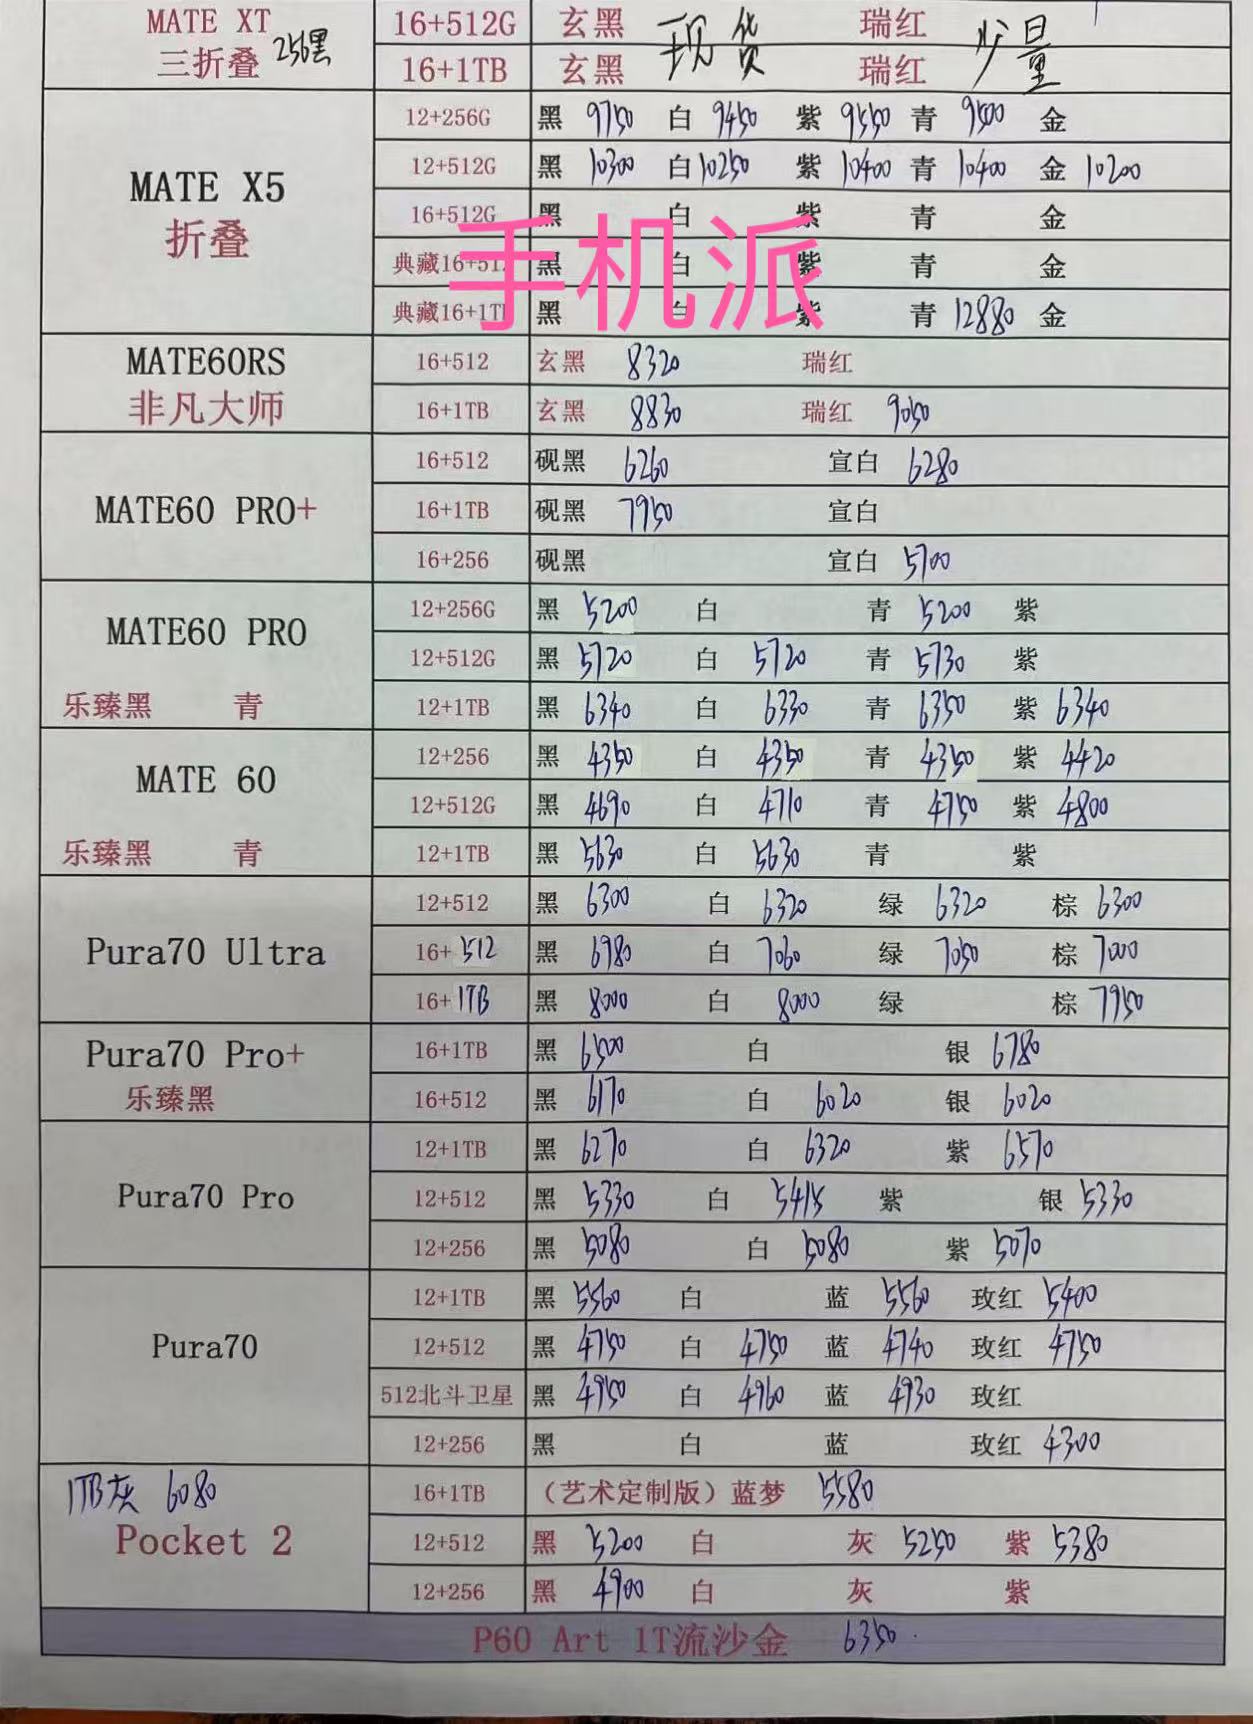 MATE XT 16+512G 玄黑 现货 瑞红 少量
三折叠 256黑 16+1TB 玄黑 瑞红
12+256G 黑 9750 白 9450 紫 9550 青 9500 金
MATE X5 12+512G 黑 10300 白 10250 紫 10400 青 10400 金 10200
折叠 16+512G 黑 白 紫 青 金
典藏16+512 黑 白 紫 青 金
典藏16+1TB 黑 白 紫 青 12880 金
手机派
MATE60RS 16+512 玄黑 8320 瑞红
非凡大师 16+1TB 玄黑 8830 瑞红 9050
16+512 砚黑 6260 宣白 6280
MATE60 PRO+ 16+1TB 砚黑 7950 宣白
16+256 砚黑 宣白 5700
MATE60 PRO 12+256G 黑 5200 白 青 5200 紫
12+512G 黑 5720 白 5720 青 5730 紫
乐臻黑 青 12+1TB 黑 6340 白 6330 青 6350 紫 6340
MATE 60 12+256 黑 4350 白 4350 青 4350 紫 4420
12+512G 黑 4690 白 4710 青 4750 紫 4800
乐臻黑 青 12+1TB 黑 5630 白 5630 青 紫
12+512 黑 6300 白 6320 绿 6320 棕 6300
Pura70 Ultra 16+512 黑 6980 白 7060 绿 7050 棕 7000
16+1TB 黑 8000 白 8000 绿 棕 7950
Pura70 Pro+ 16+1TB 黑 6500 白 银 6780
乐臻黑 16+512 黑 6170 白 6020 银 6020
12+1TB 黑 6270 白 6320 紫 6570
Pura70 Pro 12+512 黑 5330 白 5415 紫 银 5330
12+256 黑 5080 白 5080 紫 5070
12+1TB 黑 5560 白 蓝 5560 玫红 5400
Pura70 12+512 黑 4750 白 4750 蓝 4740 玫红 4750
512北斗卫星 黑 4950 白 4960 蓝 4930 玫红
12+256 黑 白 蓝 玫红 4300
1TB灰 6080 16+1TB （艺术定制版）蓝梦 5580
Pocket 2 12+512 黑 5200 白 灰 5250 紫 5380
12+256 黑 4900 白 灰 紫
P60 Art 1T流沙金 6350